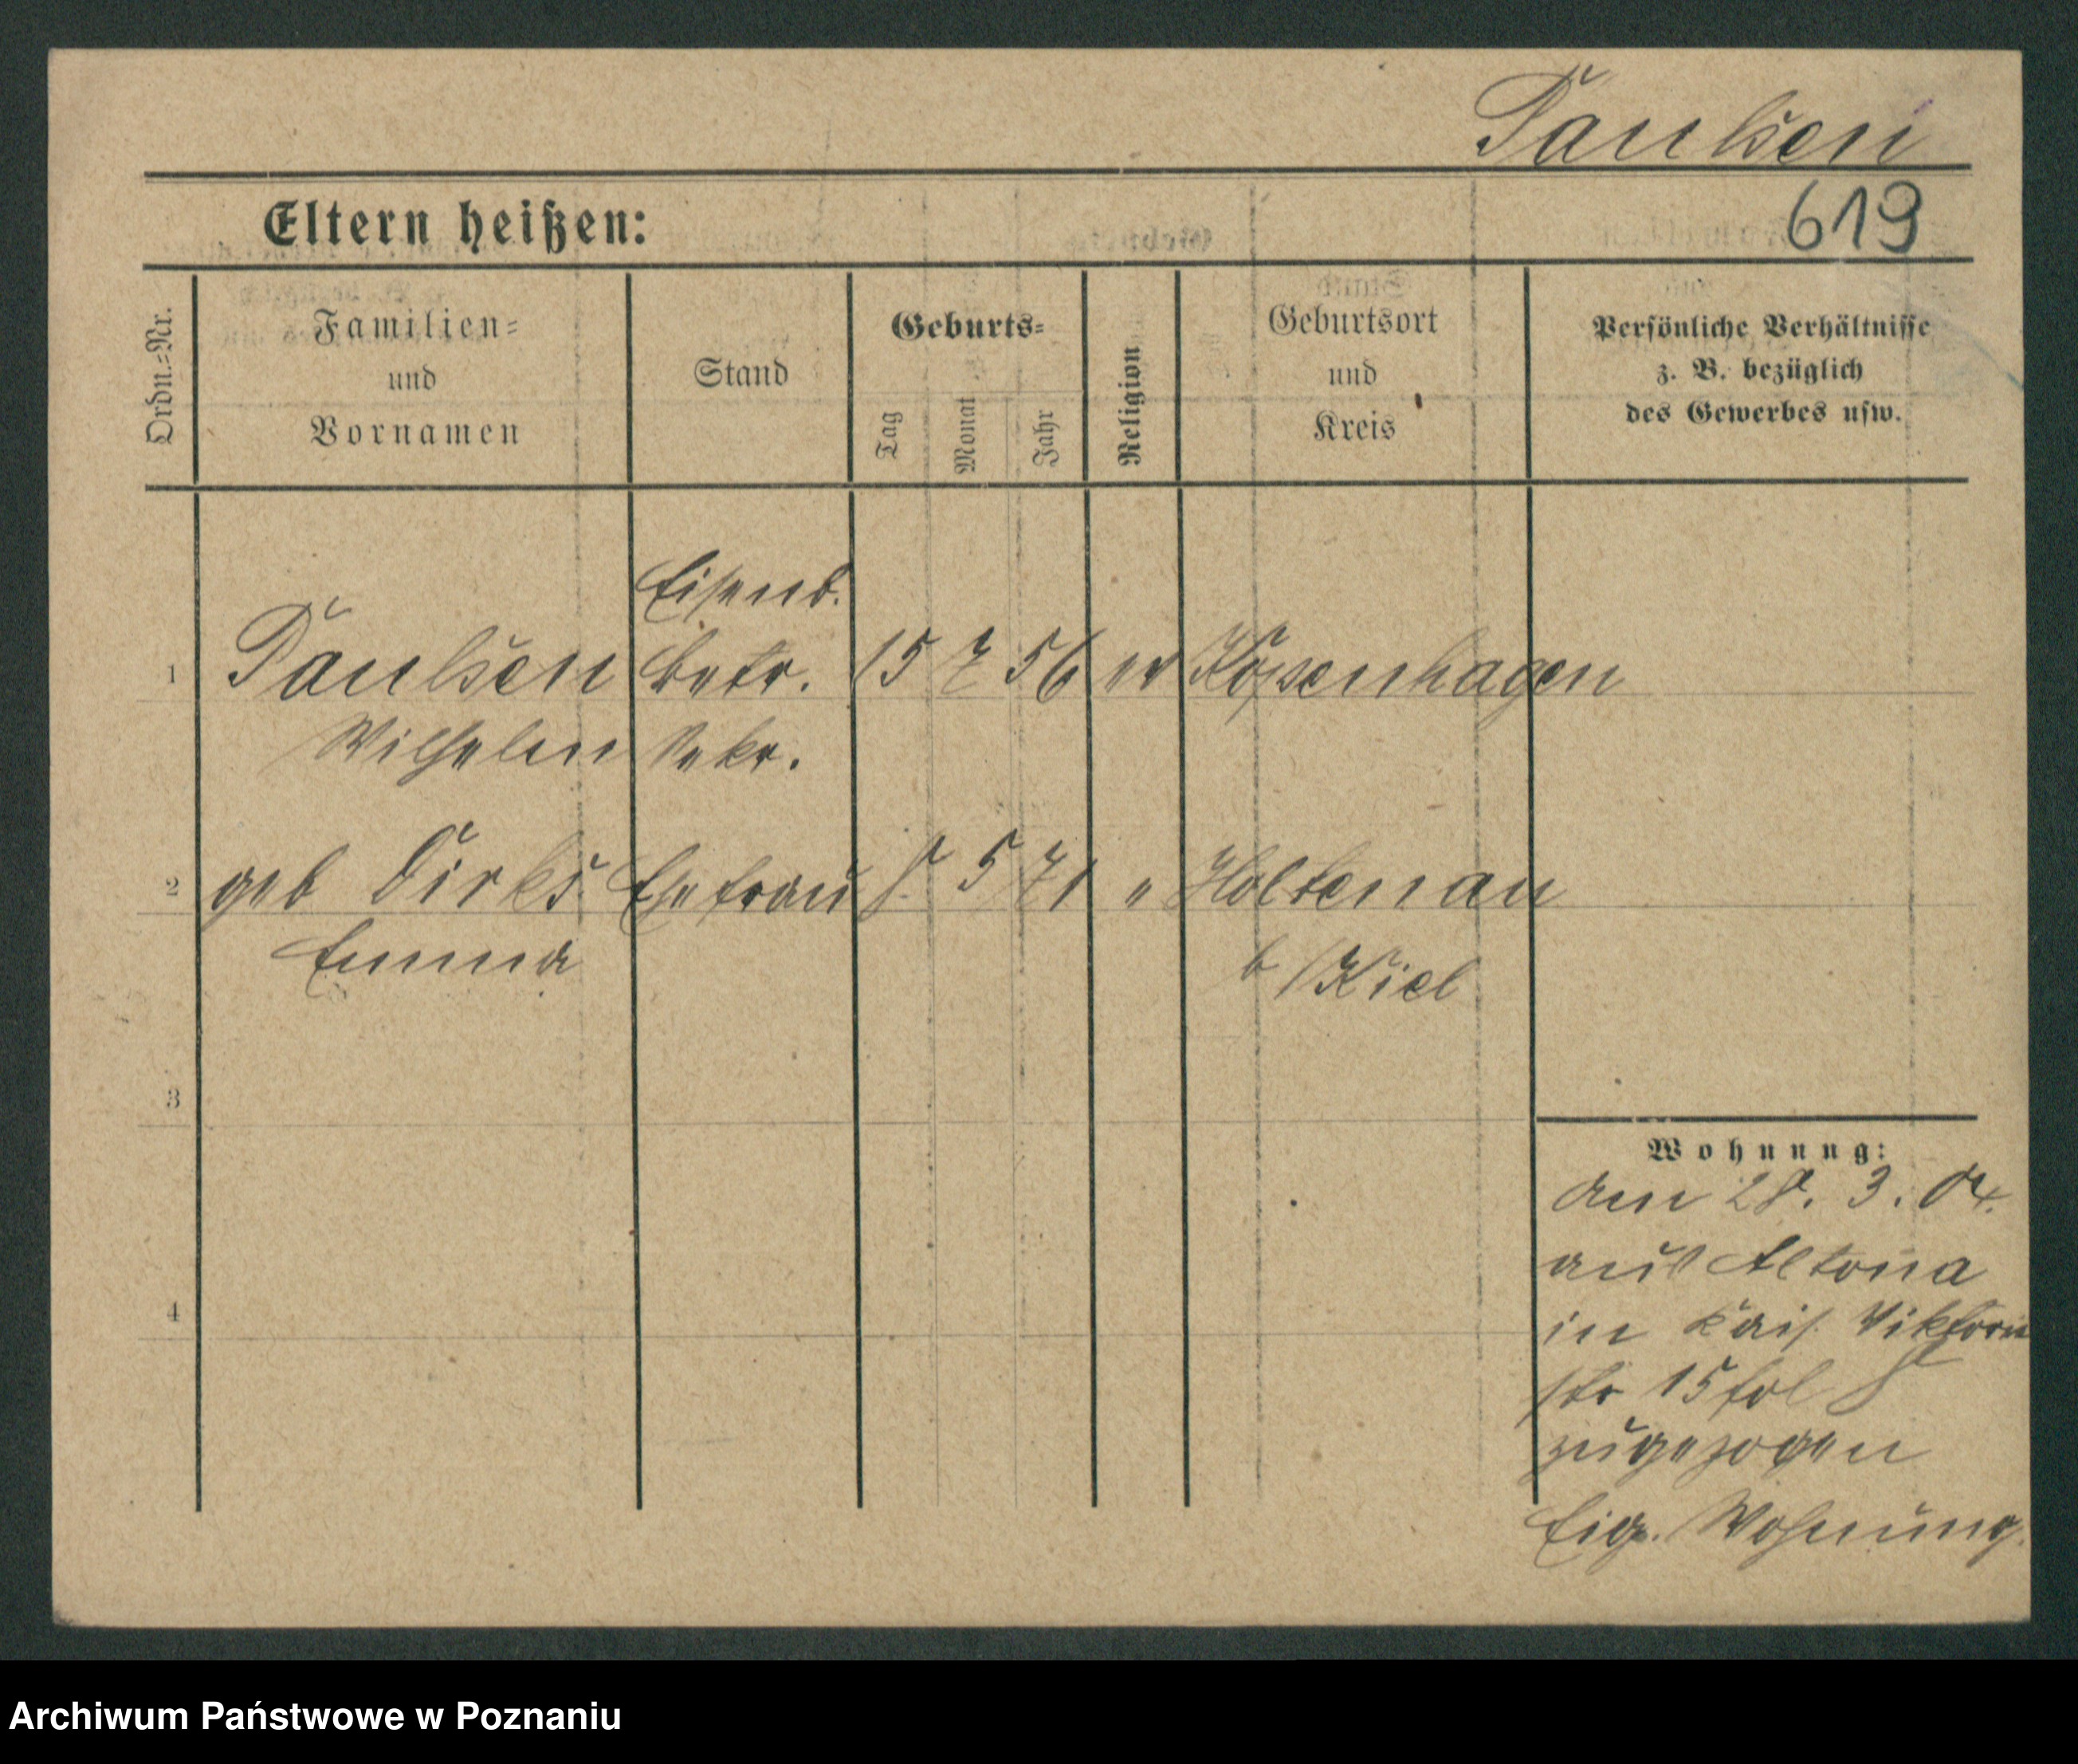 Paulsen
619
Eltern heißen:
Ordn.=Nr.
Familien=
und
Vornamen
Stand
Geburts=
Tag
Monat
Jahr
Religion
Geburtsort
und
Kreis
Persönliche Verhältnisse
z. B. bezüglich
des Gewerbes usw.
Eisenb.
1 Paulsen Betr. 15 7 56 ev Kopenhagen
Wilhelm Sekr.
2 geb Dirks Ehefrau 8. 5 71 " Holtenau
Emma b/Kiel
3
4
Wohnung:
den 28. 3. 04.
aus Altona
in Kais. Viktoria
str 15 fol
zugezogen
Eig. Wohnung.
Archiwum Państwowe w Poznaniu